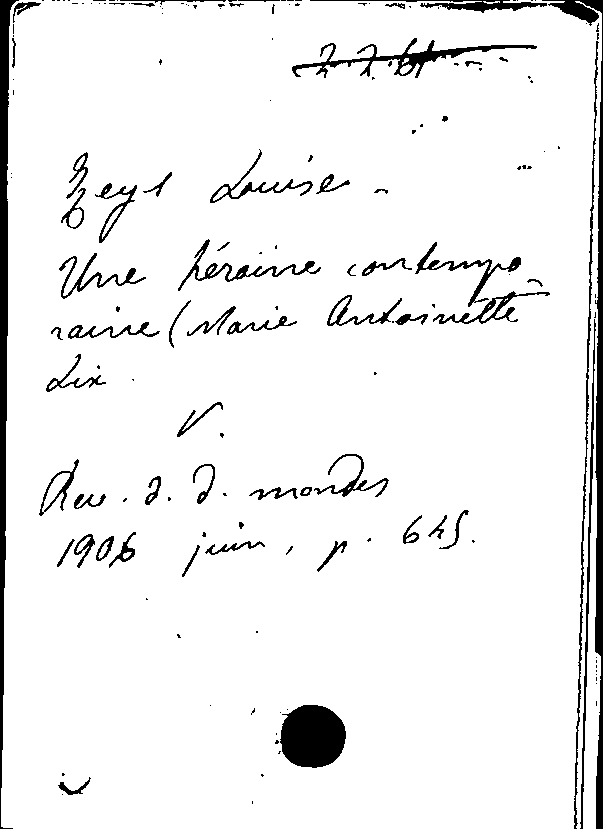 Zeyt Louise -
Une héroine contempo-
raine (Marie Antoinette
Lix
V.
Rev. d. d. mondes
1906 juin, p. 645.